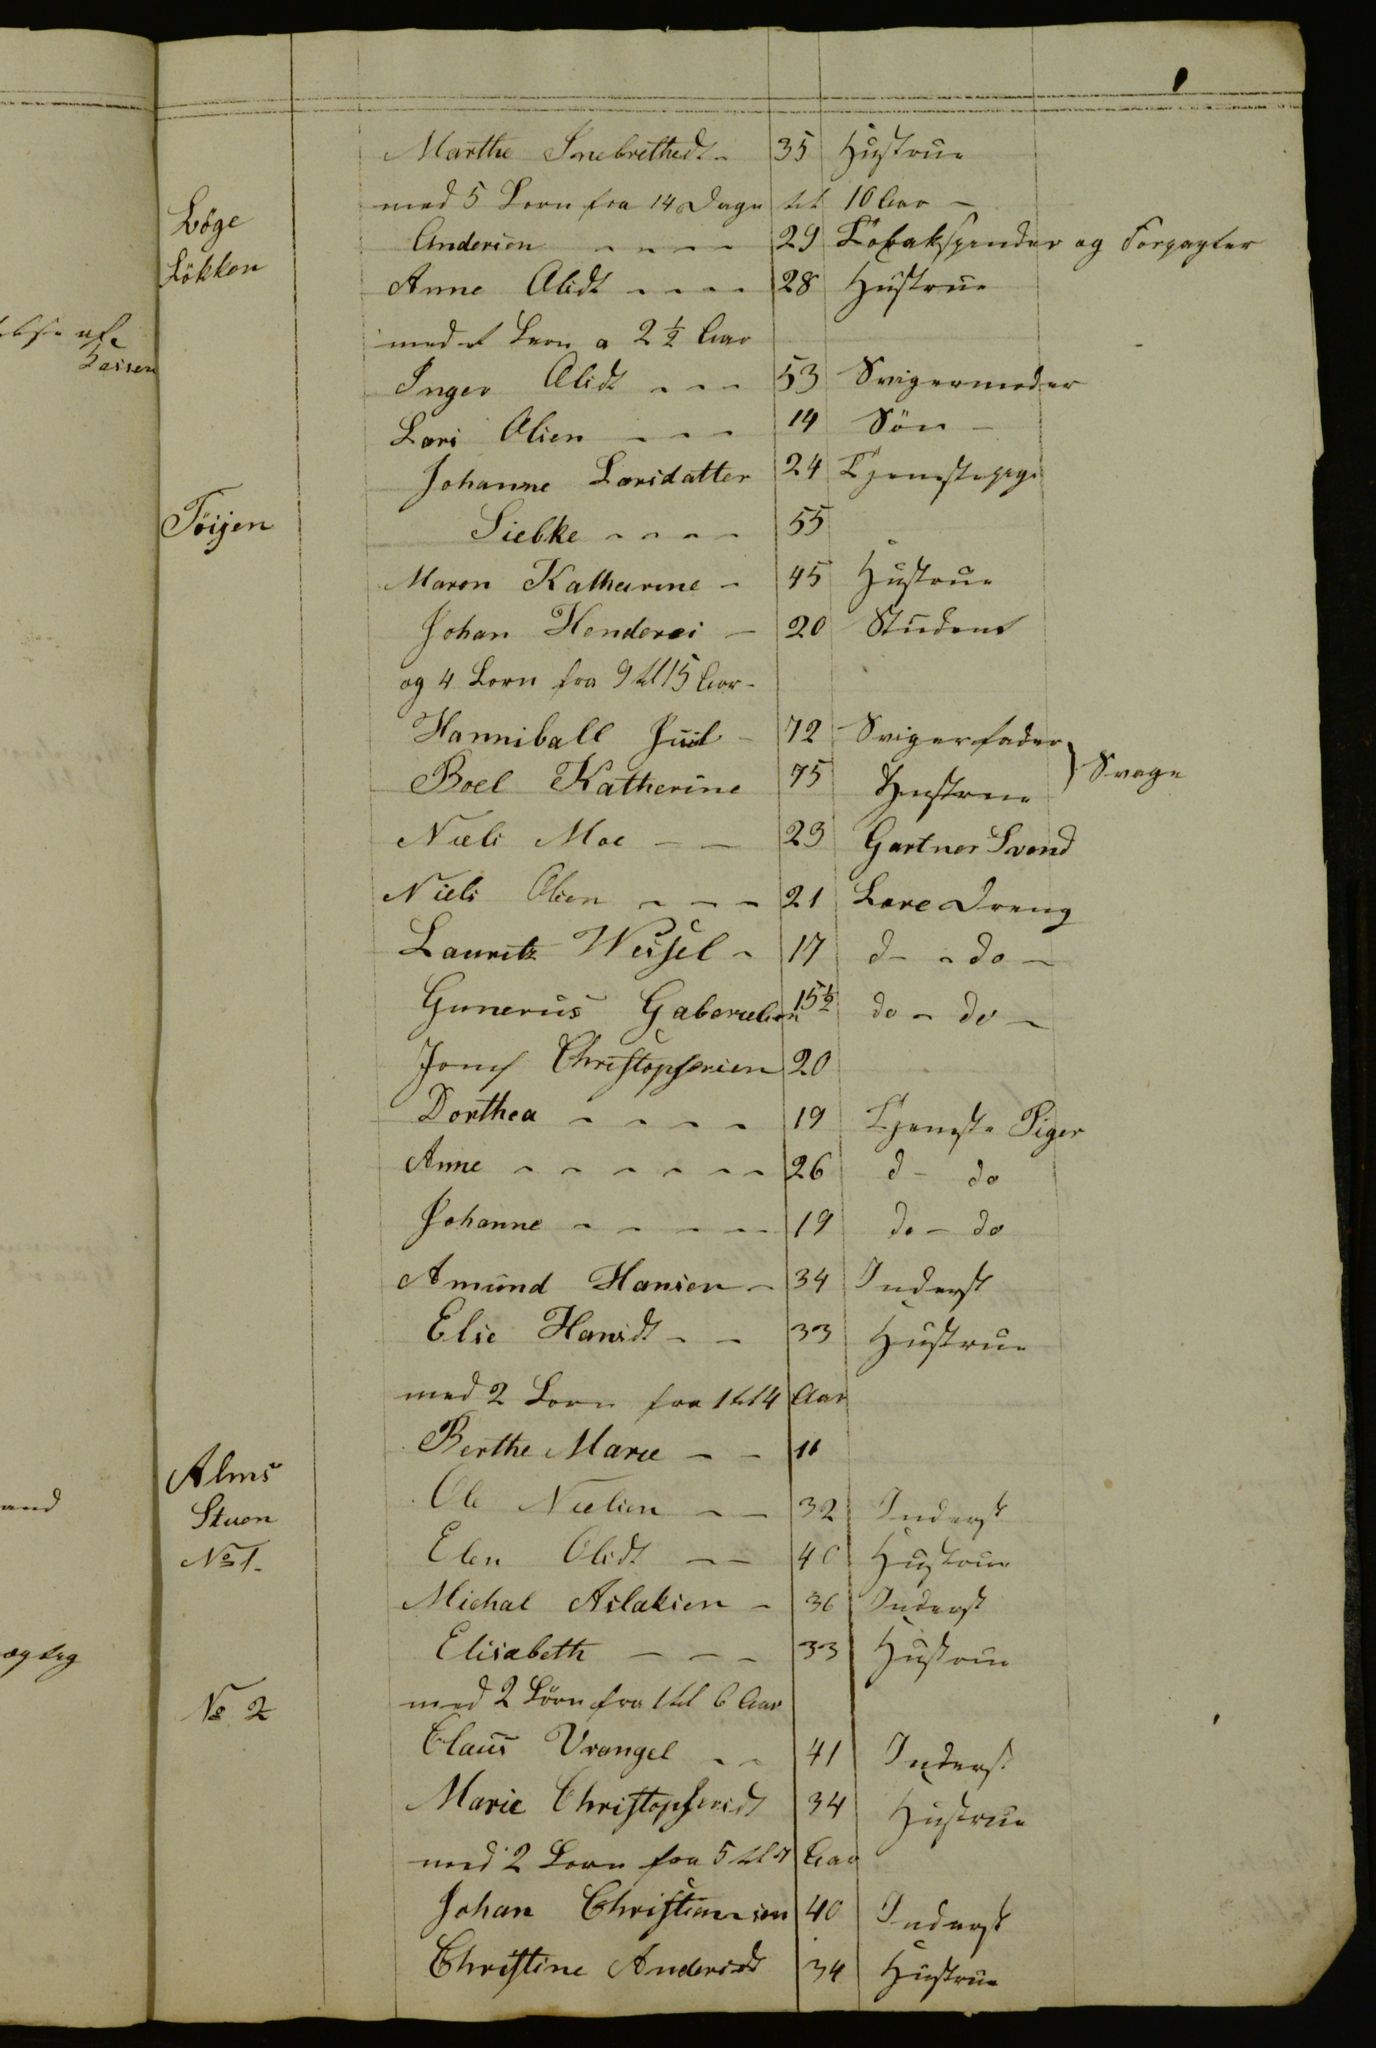 Marthe Inebrethdt - 35 Hustrue
med 5 Born fra 14 Dage til 10 Aar -
Löge
Andersen - - - - 29 Tobakspinder og Forpagter
Lökken
Anne Olsdt - - - - 28 Hustrue
med et Barn a 2 1/2 Aar
Inger Olsdt - - - 53 Svigermoder
Lars Olsen - - - 14 Sön -
Johanne Larsdatter 24 Tjenestepige
Töijen
Siebke - - - - 55
Maren Katharine - 45 Hustrue
Johan Henderic - 20 Student
og 4 Born fra 9 til 15 Aar -
Hanniball Juul - 72 Svigerfader
Boel Katherine 75 Hustrue } Svage
Niels Moe - - 23 Gartner Svend
Niels Olsen - - - 21 Lære Dreng
Lauritz Wessel - 17 d - - do -
Gunerus Gaberielsen 15 1/2 do - do -
Jens Christophersen 20
Dorthea - - - - 19 Tjeneste Piger
Anne - - - - - - 26 d - do
Johanne - - - - - 19 do - do
Amund Hansen - 34 Inderst
Else Hansdt - - 33 Hustrue
med 2 Born fra 1 til 4 Aar
Berthe Marie - - 11
Alms
Stuen
Ole Nielsen - - 32 Inderst
No 1.
Elen Olsdt - - 40 Hustrue
Michal Aslaksen - 36 Inderst
Elisabeth - - - 33 Hustrue
med 2 Börn fra 1 til 6 Aar
No 2
Claus Vrangel - - 41 Inderst
Marie Christophersdt 34 Hustrue
med 2 Born fra 5 til Aar
Johan Christiansen 40 Inderst
Christine Andersdt 34 Hustrue